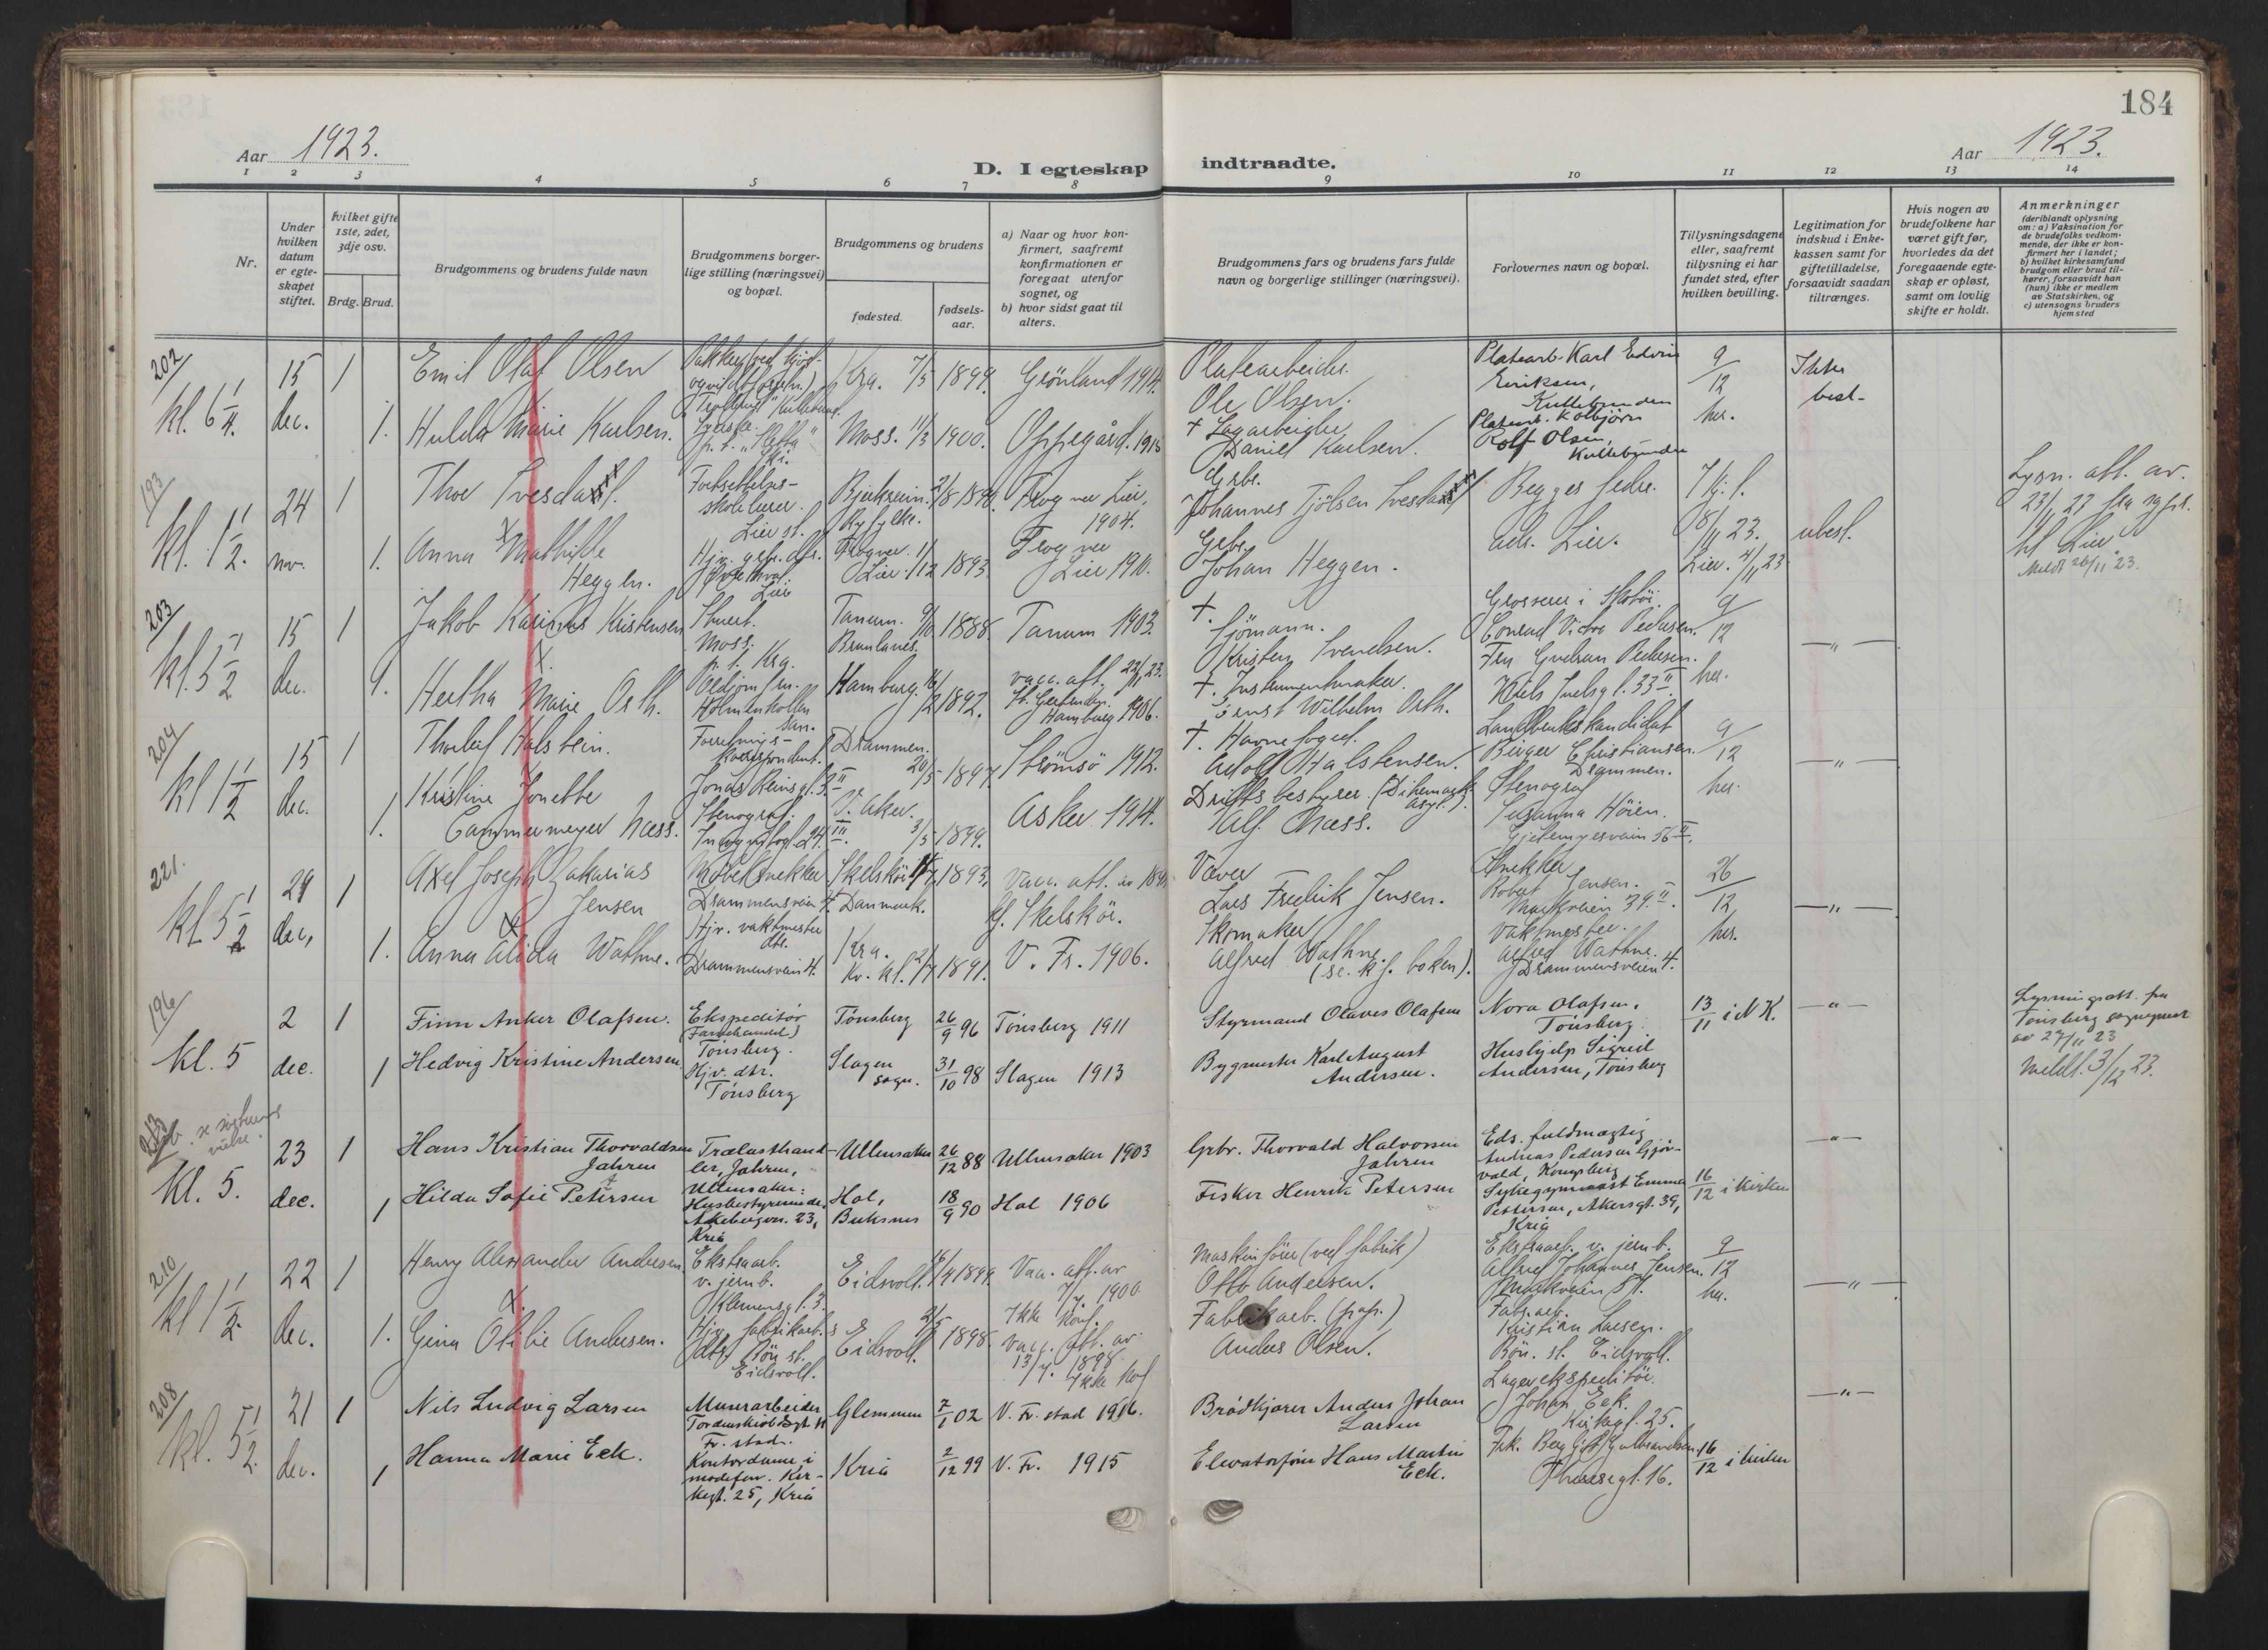 184
Aar 1923.
D. I egteskap indtraadte.
Aar 1923.
1 2 3 4 5 6 7 8 9 10 11 12 13 14
Nr.
Under hvilken datum er egteskapet stiftet.
Hvilket gifte 1ste, 2det, 3dje osv.
Brdg. Brud.
Brudgommens og brudens fulde navn
Brudgommens borgerlige stilling (næringsvei) og bopæl.
Brudgommens og brudens
fødested. fødselsaar.
a) Naar og hvor konfirmert, saafremt konfirmationen er foregaat utenfor sognet, og
b) hvor sidst gaat til alters.
Brudgommens fars og brudens fars fulde navn og borgerlige stillinger (næringsvei).
Forlovernes navn og bopæl.
Tillysningsdagene eller, saafremt tillysning ei har fundet sted, efter hvilken bevilling.
Legitimation for indskud i Enkekassen samt for giftetilladelse, forsaavidt saadan tiltrænges.
Hvis nogen av brudefolkene har været gift før, hvorledes da det foregaaende egteskap er opløst, samt om lovlig skifte er holdt.
Anmerkninger
(deriblandt oplysning om: a) Vaksination for de brudefolks vedkommende, der ikke er konfirmert her i landet;
b) hvilket kirkesamfund brudgom eller brud tilhører, forsaavidt han (hun) ikke er medlem av Statskirken, og
c) utensogns bruders hjemsted
202 kl. 6 1/4.
15 dec. 1
Emil Olaf Olsen
Kra. 7/5 1899. Grönland 1914.
Platearbeider. Ole Olsen.
Platearb. Karl Edvin Eriksen, Kullebunden
9/12 her.
Ikke best.
1. Hulda Marie Karlsen.
Moss. 11/3 1900. Oppegård. 1915
† Sagarbeider Daniel Karlsen.
Platearb. Kolbjörn Rolf Olsen, Kullebunden
193 kl. 1 1/2.
24 nov. 1
Thor
Fortsettelsesskolelærer. Lier st.
Bjerkreim Ryfylke. 1898. Frogner Lier, 1904.
Grbr. Johannes Tjölsen
Begges fedre. adr. Lier.
18/11 23. Lier. 4/11 23
ubest.
Lysn. att. av 23/11 23 fra sgpr. til Lier
Meldt 26/11 23.
1. Anna Mathilde Heggen.
Hjv. grbr. dtr. Lier
Frogner. Lier. 11/12 1893 Frogner Lier 1910.
Grbr. Johan Heggen.
203 kl. 5 1/2
15 dec. 1
Jakob Karinus Kristensen
Stuert. Moss. p. t. Kra.
Tanum. Brunlanes. 9/10 1888. Tanum 1903.
†. Sjömann. Kristen Svendsen.
Grosserer i Skotöi. Conrad Victor Pedersen.
9/12 her.
— " —
1. Hertha Marie Orth.
Holmenkollen san.
Hamburg. 16/2 1892. vacc. att. 22/11 23. St. Gertruden. Hamburg 1906.
†. Instrumentmaker. Ernst Wilhelm Orth.
Fru Gudrun Pedersen. Niels Juelsgt. 33 II.
204 kl 1 1/2
15 dec. 1
Thorleif Halstein.
Forretningskorrespondent. Jonas Reinsgt. 3 II
Drammen. 20/5 1897. Strömsö 1912.
†. Havnefoged. Adolf Halstensen.
Landbrukskandidat Birger Christiansen. Drammen.
9/12 her.
— " —
1. Kristine Jonette Cammermeyer Næss.
Stenograf.
V. Aker. 3/5 1899. Asker 1914.
Driftsbestyrer. (Dikemark Asyl). Alf. Næss.
Stenograf Susanna Höien. Gjetemyrsveien 56 II.
221. kl 5 1/2
29 dec, 1
Axel Joseph Zakarias Jensen
Möbelsnekker Drammensvein 4.
Skelskör Danmark. 1893. Vacc. att. kf. Skelskör.
Væver Lars Fredrik Jensen.
Snekker Robert Jensen. Markveien 39. II.
26/12 her.
— " —
1. Anna Alida Wathne.
Hjv. vaktmester dtr. Drammensvein 4.
Kra. 2/7 1891. V. Fr. 1906.
Skomaker Alfred Wathne. (se. kf. boken).
Vaktmester. Alfred Wathne. Drammensveien 4.
196 kl. 5
2 dec. 1
Finn Anker Olafsen.
Ekspeditör (Farvehandel) Tönsberg.
Tönsberg 26/9 96 Tönsberg 1911
Styrmand Olaves Olafsen
Nora Olafsen. Tönsberg.
13/11 i N.K.
— " —
Lysningsatt. fra Tönsberg sogneprest av 27/11 23
Meldt. 3/12 23.
1 Hedvig Kristine Andersen
Hjv. dtr. Tönsberg
Slagen sogn. 31/10 98 Slagen 1913
Bygmester Karl August Andersen.
Hushjelp Sigrid Andersen, Tönsberg
213 kl. 5.
23 dec. 1
Hans Kristian Thorvaldsen Jahren
Trælasthandler, Jahren, Ullensaker.
Ullensaker 26/12 88 Ullensaker 1903
Grbr. Thorvald Halvorsen Jahren
Eds. fuldmægtig Andreas Pedersen Gjörvald, Kongsberg
— " —
1 Hilda Sofie Petersen
Husbestyrerinde. Akebergvn. 23, Kria
Hol, Buksnes 18/9 90 Hol 1906
Fisker Henrik Petersen
Sykegymnast Emma Pettersen, Akersgt. 39, Kria
16/12 i kirken
210 kl 1 1/2
22 dec. 1
Henry Alexander Andersen.
Ekstraarb. v. jernb. Klemensgt. 3.
Eidsvoll. 16/4 1899. Vac. att. av 7/7. 1900. Ikke konf.
Maskinförer (ved fabrik) Otto Andersen.
Ekstraarb. v. jernb. Alfred Johannes Jensen. Markveien 57.
9/12 her.
— " —
1. Gina Otilie Andersen.
Hjv. fabrikarb.s dtr. Bön st. Eidsvoll.
Eidsvoll. 1898. Vacc. att. av 13/7. 1898 Ikke konf
Fabrikarb. (pap.) Anders Olsen.
Fabr. arb. Kristian Larsen. Bön. st. Eidsvoll.
208 kl. 5 1/2.
21 dec. 1
Nils Ludvig Larsen
Murerarbeider Fr. stad.
Glemmen 7/1 02 V. Fr. stad 1916.
Brödkjører Anders Johan Larsen
Lagerekspeditör. Johan Eek. Kirkegt. 25.
— " —
1 Hanna Marie Eek.
Kontordame i modeforr. Kirkegt. 25, Kria
Kria 2/12 99 V. Fr. 1915
Elevatorförer Hans Martin Eek.
Frk. Bergljot Gulbrandsen Theresegt. 16.
16/12 i kirken